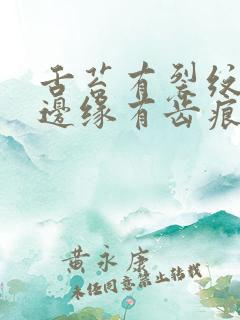 舌苔有裂纹
邊缘有齿痕
黄永康
未经同意禁止转载